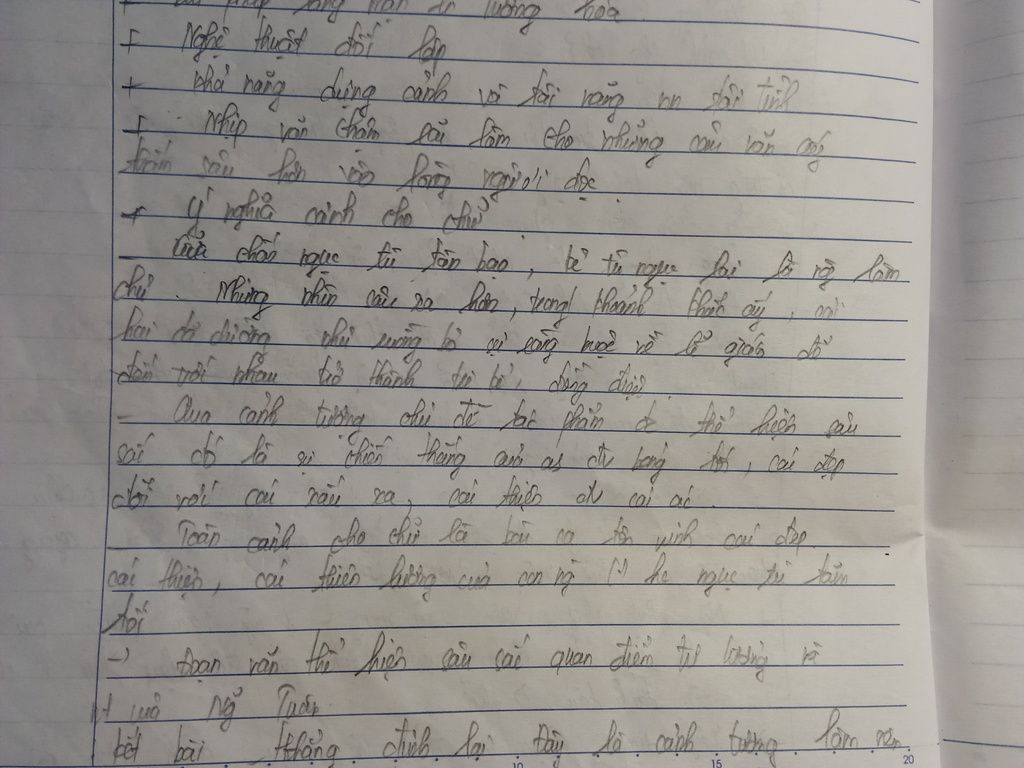 + bút pháp lãng mạn lí tưởng hóa
+ Nghệ thuật đối lập
+ khả năng dựng cảnh và tài năng nn tài tình
+ Nhịp văn chậm rãi làm cho những câu văn
thấm sâu hơn vào lòng người đọc
+ ý nghĩa cảnh cho chữ
- Giữa chốn ngục tù tàn bạo, kẻ tử ngục lại là ng làm
chủ. Nhưng nhìn sâu xa hơn, trong khoảnh khắc ấy, cái
hai dường như xương bỏ sự ràng buộc về lẽ giáo để
đến với nhau trở thành tri kỉ, đồng điệu
- Qua cảnh tượng chủ đề tác phẩm đc thể hiện sâu
sắc đó là sự chiến thắng của as đv bóng tối, cái đẹp
đối với cái xấu xa, cái thiện đv cái ác.
Toàn cảnh cho chữ là bài ca tôn vinh cái đẹp
cái thiện, cái thiên lương của con ng ngục tù tăm
tối
-> Đoạn văn thể hiện sâu sắc quan điểm tư tưởng và
+ của Ng Tuân
kết bài khẳng định lại đây là cảnh tượng
10 15 20